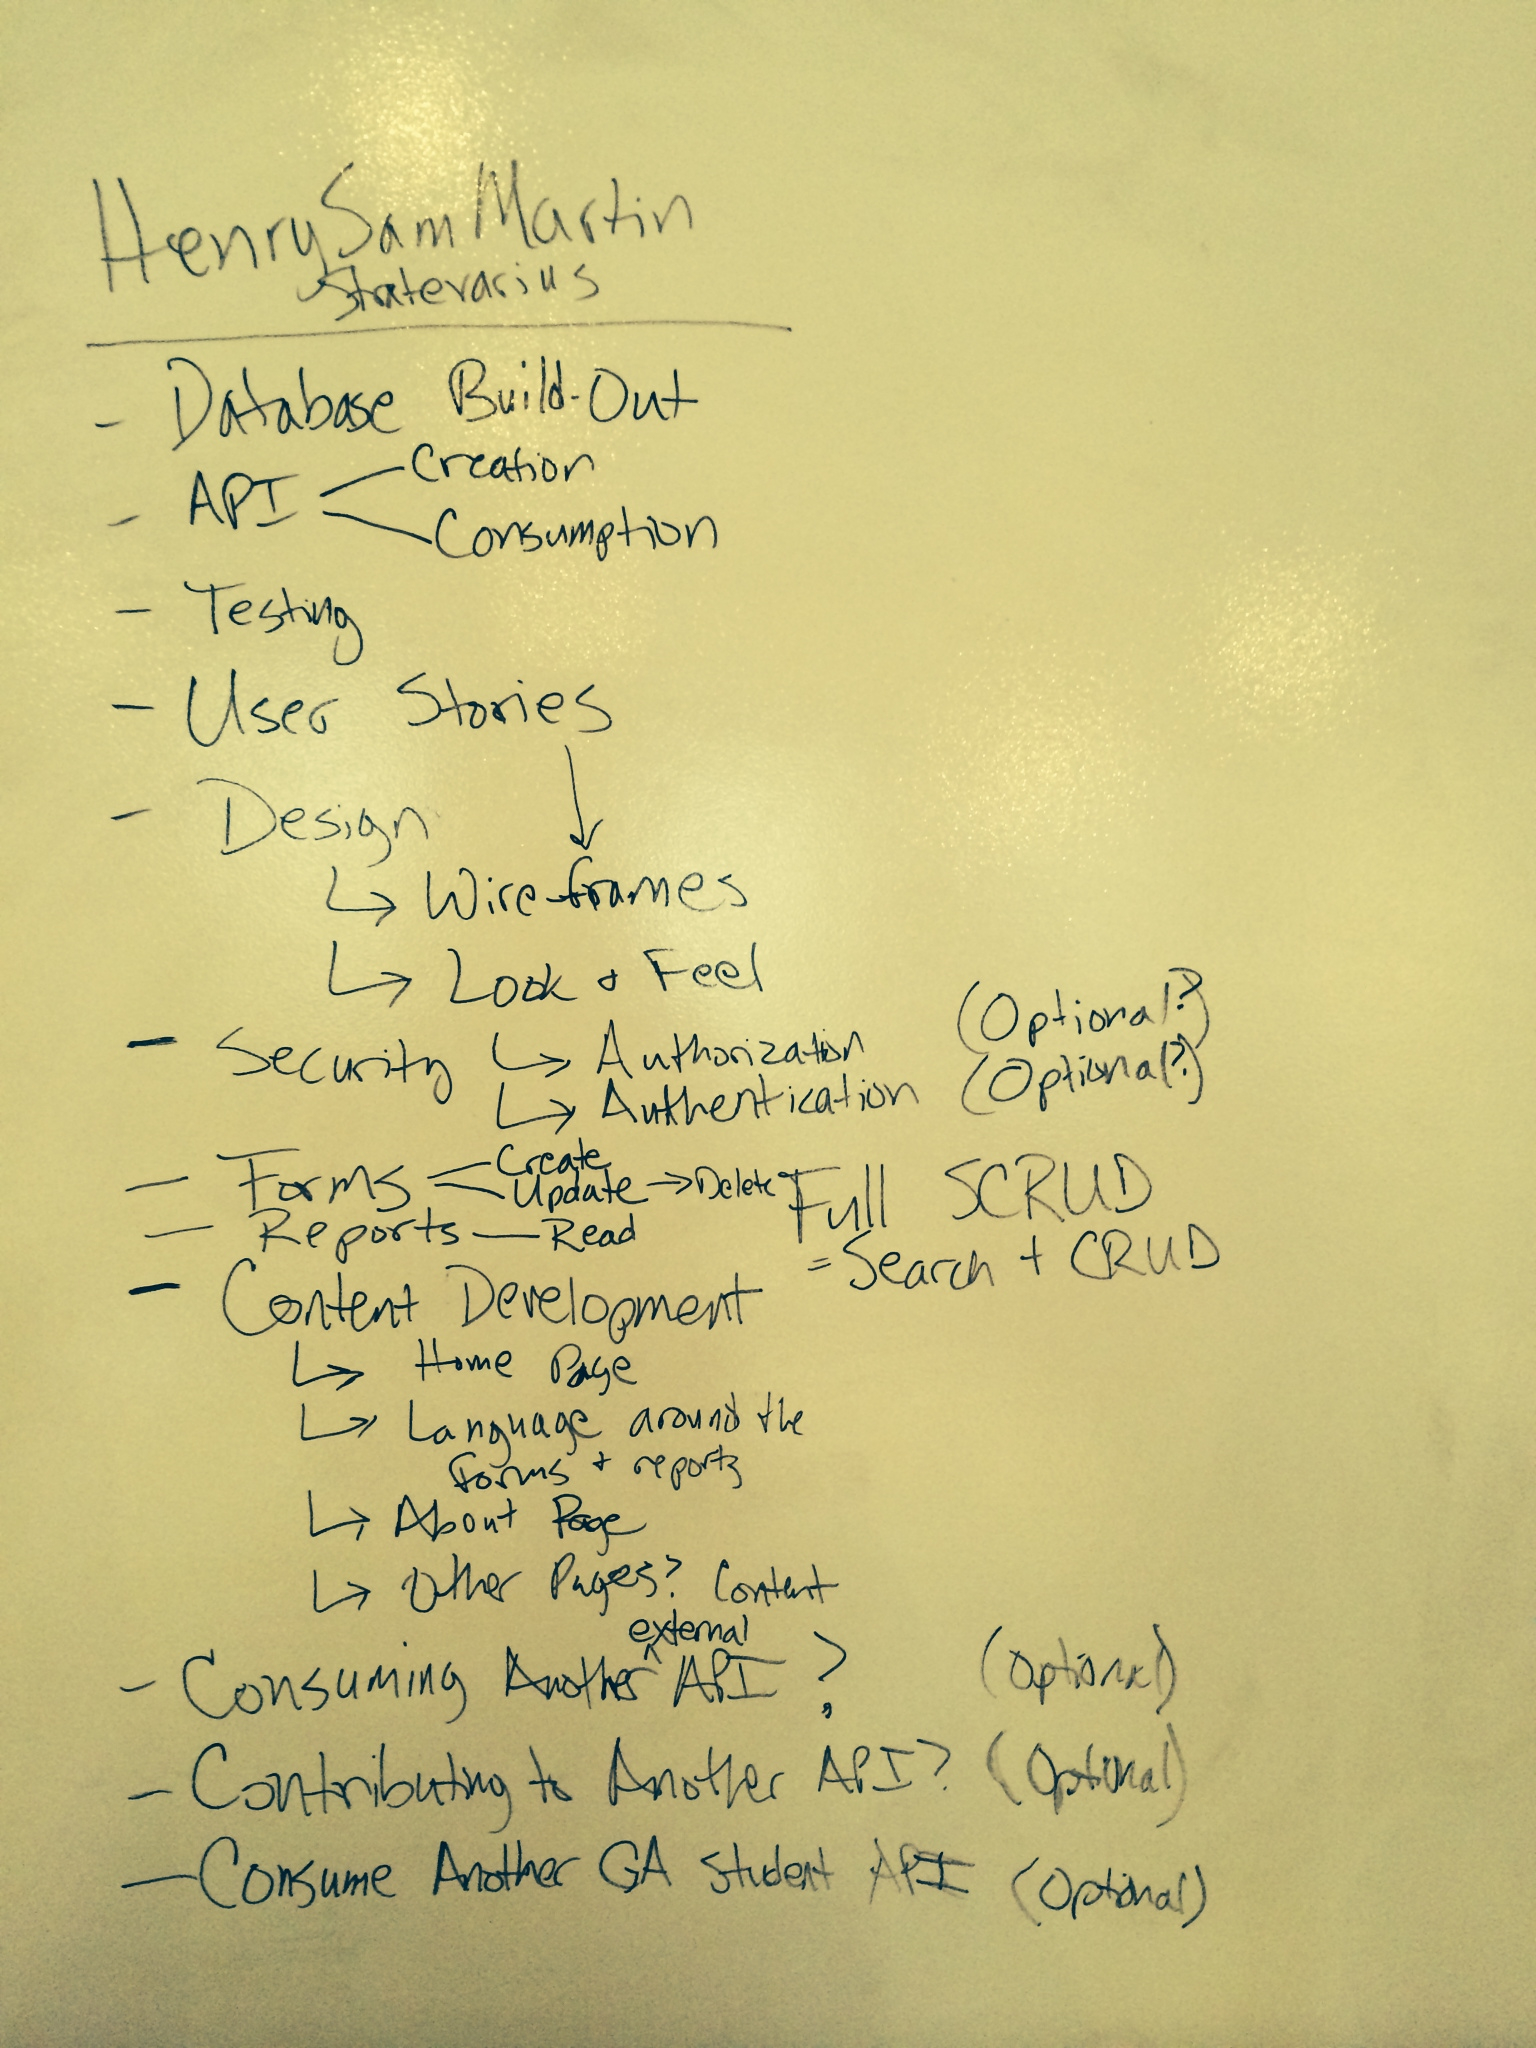 HenrySamMartin
Stratevarius
- Database Build-Out
- API Creation
Consumption
- Testing
- User Stories
- Design
Wireframes
Look + Feel
- Security Authorization (Optional?)
Authentication (Optional?)
- Forms Create
Update → Delete Full SCRUD
- Reports — Read
= Search + CRUD
- Content Development
Home Page
Language around the
forms + reports
About Page
Other Pages? Content
external
- Consuming Another ^ API? (Optional)
- Contributing to Another API? (Optional)
- Consume Another GA Student API (Optional)